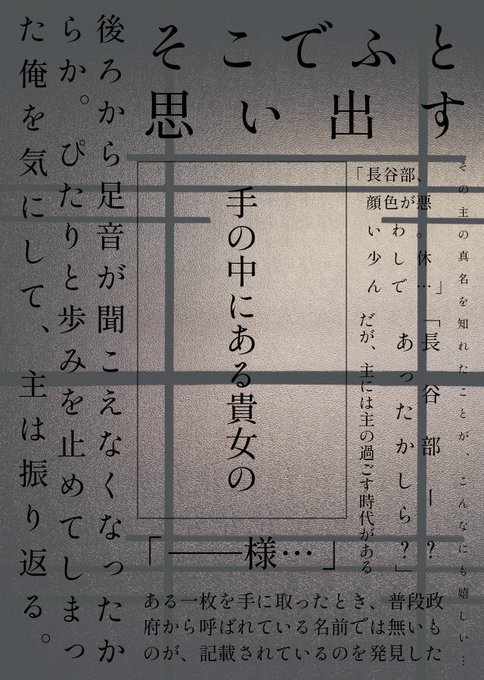 そこでふと
思い出す
その主の真名を知れたことが、こんなにも嬉しい…
「長谷部、
顔色が悪
いわ。
少し休
んで…」
「長谷部ー?
あったかしら?」
だが、主には主の過ごす時代がある
手の中にある貴女の
「――様…」
後ろから足音が聞こえなくなったか
らか。ぴたりと歩みを止めてしまっ
た俺を気にして、主は振り返る。
ある一枚を手に取ったとき、普段政
府から呼ばれている名前では無いも
のが、記載されているのを発見した